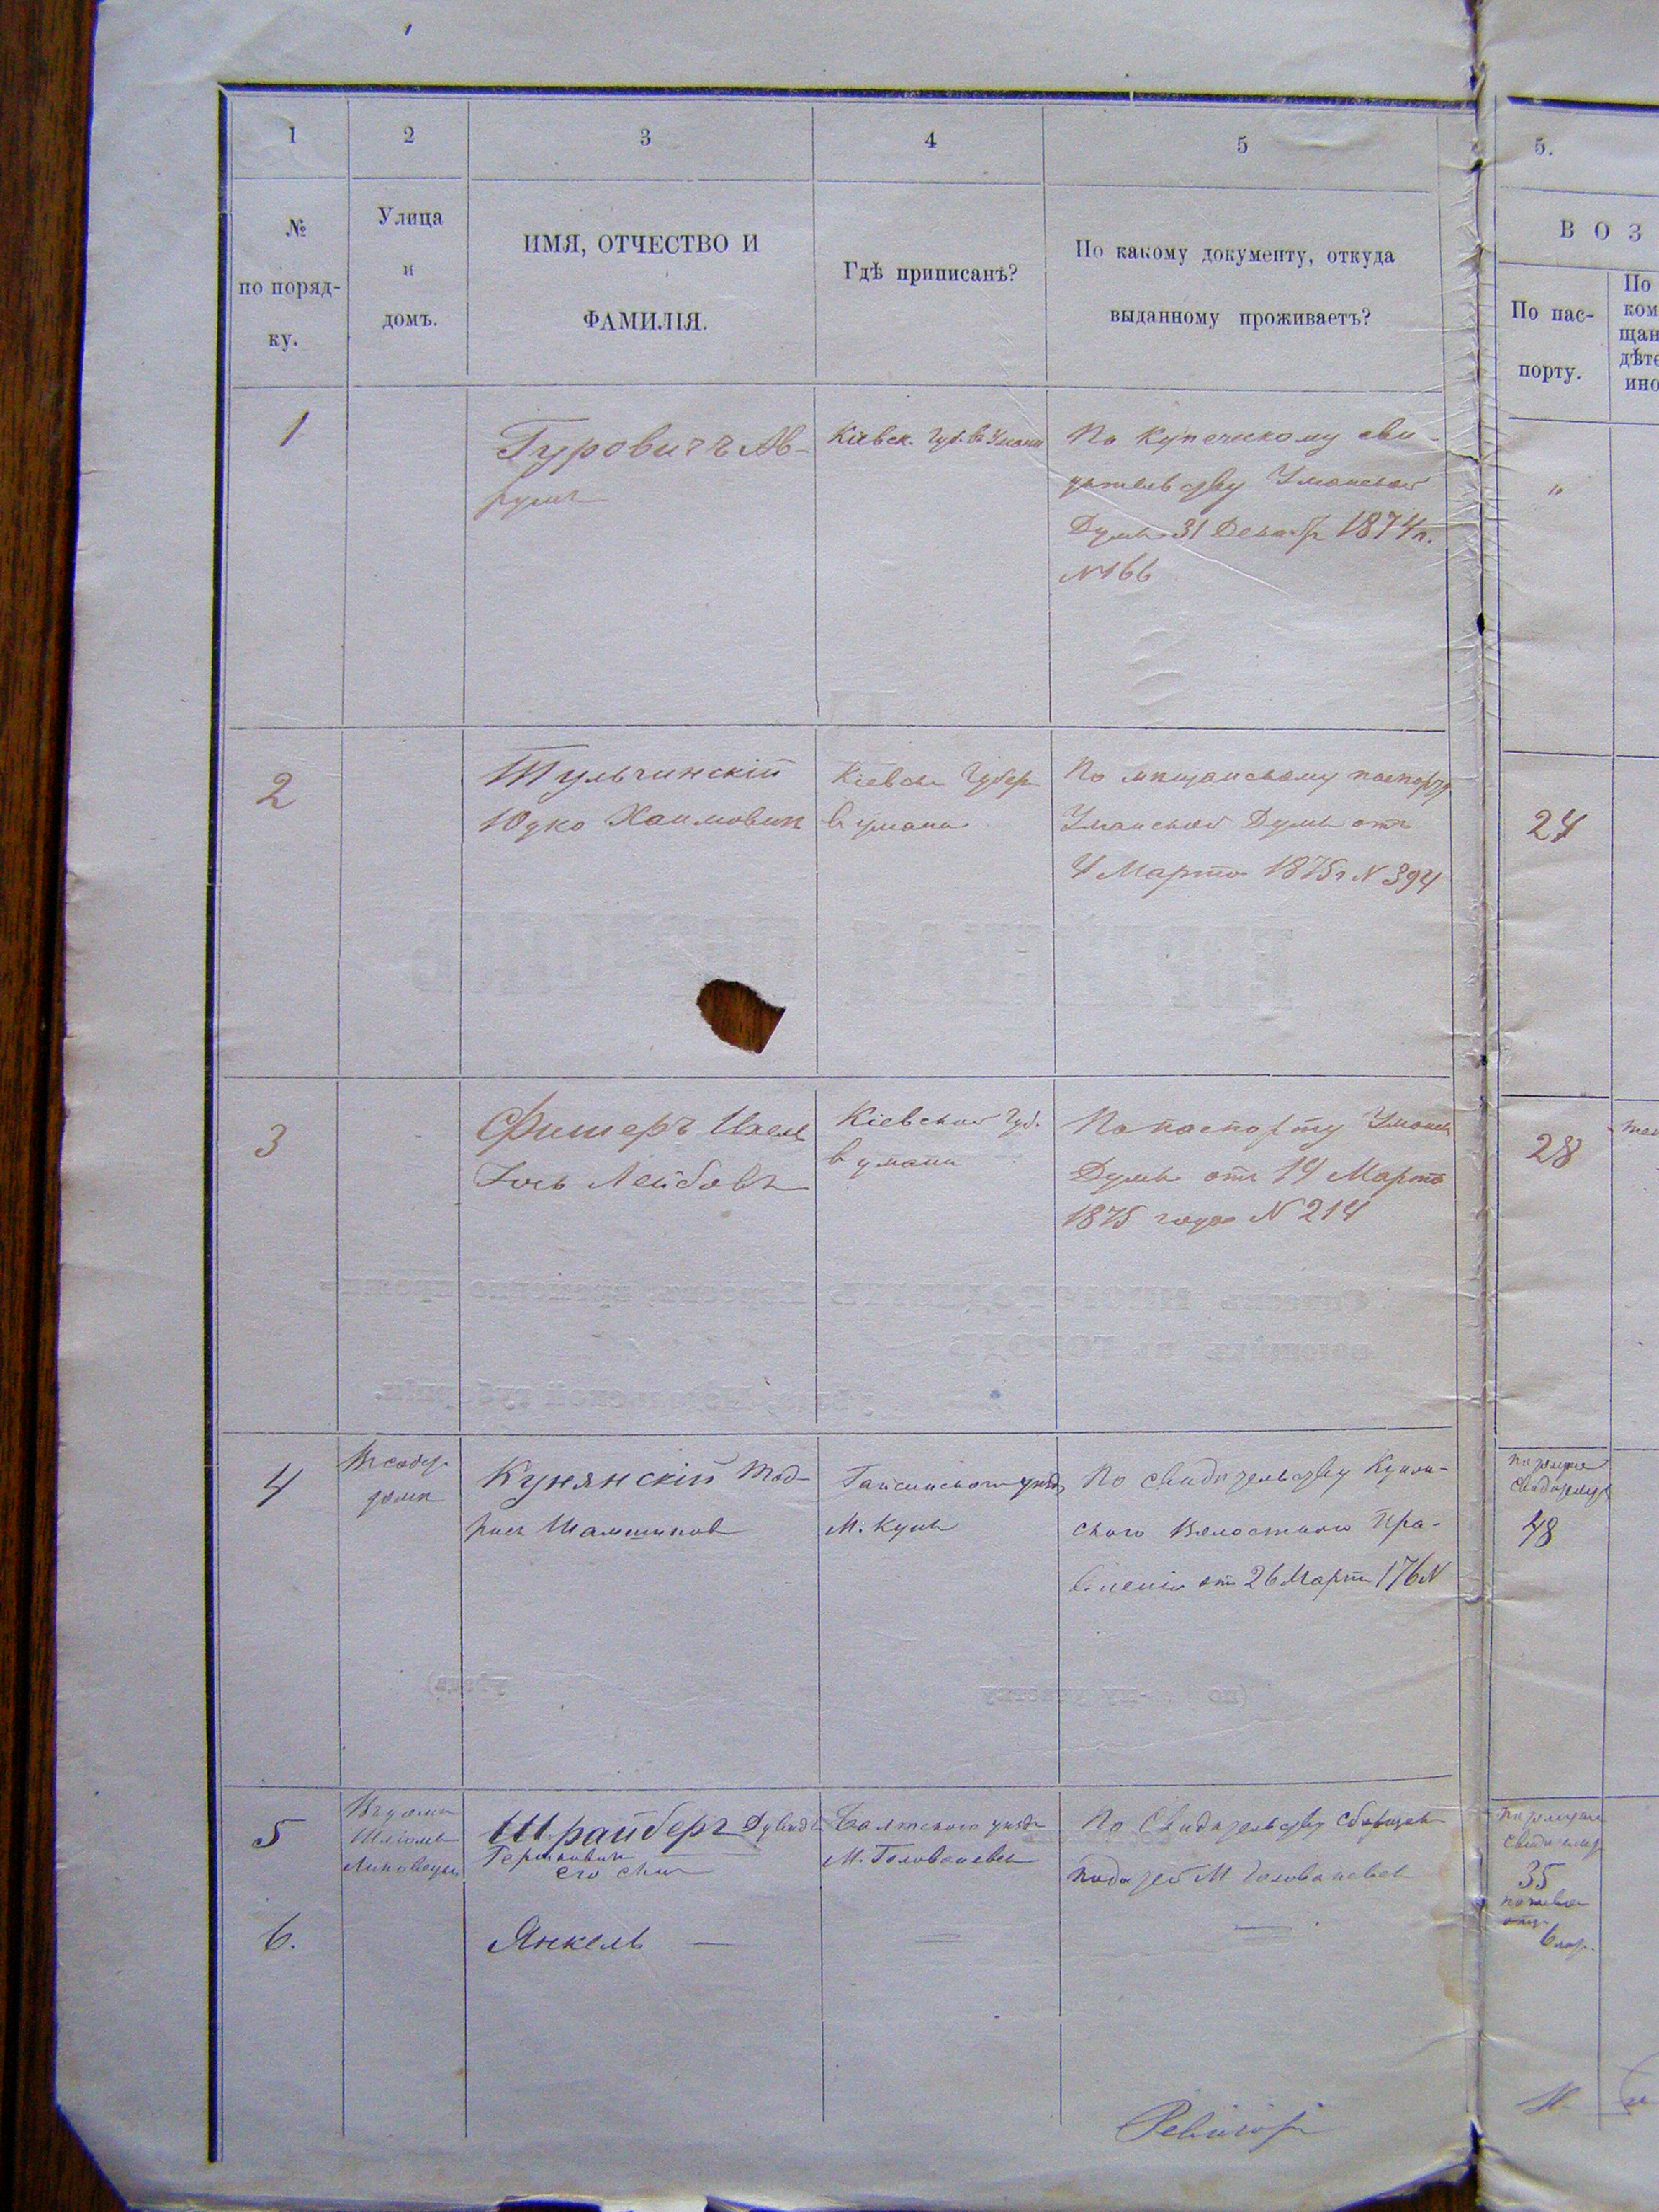 1
2
3
4
5
5.
№
по поряд-
ку.
Улица
и
домъ.
ИМЯ, ОТЧЕСТВО И
ФАМИЛІЯ.
Гдѣ приписанъ?
По какому документу, откуда
выданному проживаетъ?
В О З
По пас-
порту.
По
ком
щан
дѣте
ино
1
Гуровичъ Ав-
румъ
Кіевск. Губ. въ Умани
По Купеческому сви-
детельству Уманской
Думы 31 Декабр 1874 г.
N 166
"
2
Тульчинскій
Юдко Хаимович
Кіевск Губер
в Умани
По мещанскому паспорту
Уманской Думы отъ
4 Марта 1875 г N 394
24
3
Фишеръ Ихель
Лейбовъ
Кіевской Губ.
в Умани
По паспорту Уманск
Думы отъ 14 Марта
1875 года N 214
28
4
В собст.
доме
Кунянскій
Гайсинского уезд
М. Куны
По свидетельству Кунян-
ского Волостного Пра-
вленія от 26 Марта 176 N
48
5
Шрайберъ Дувидъ
Гершкович
его сын
Балтского уезда
М. Голованевск
По Свидетельству Сборщика
податей М Голованевск
35
6.
Янкель —
6